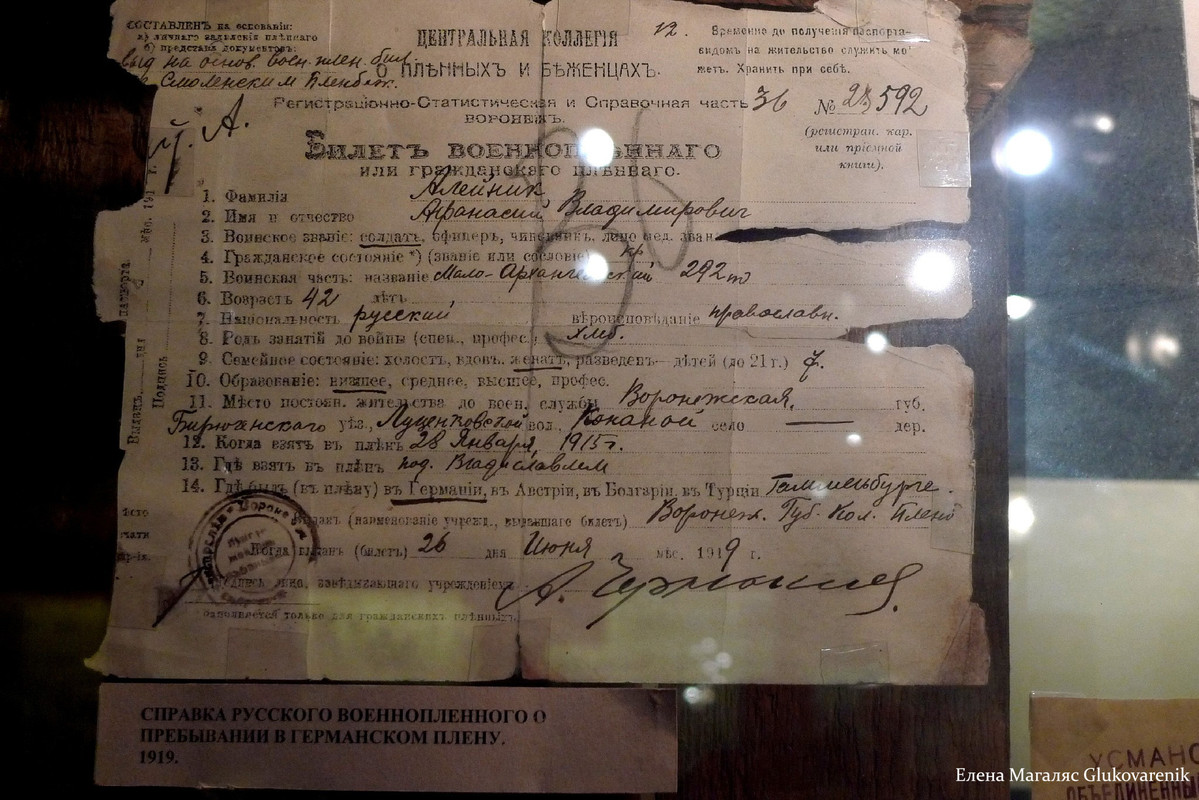 СОСТАВЛЕНЪ на основаніи:
а) личнаго заявленія плѣннаго
б) представ. документовъ:
выд на основ воен. плен. бил.
Смоленским Пленбеж.
ЦЕНТРАЛЬНАЯ КОЛЛЕГІЯ
О ПЛѢННЫХЪ И БѢЖЕНЦАХЪ.
12.
Временно до полученія паспорта
видомъ на жительство служить мо-
жетъ. Хранить при себѣ.
Регистраціонно-Статистическая и Справочная часть 36
ВОРОНЕЖЪ.
№ 28592
(регистрац. кар.
или пріемной
книги).
А.
БИЛЕТЪ ВОЕННОПЛѢННАГО
ИЛИ ГРАЖДАНСКАГО ПЛѢННАГО.
36
1. Фамилія Алейник
2. Имя и отчество Афанасий Владимирович
3. Воинское званіе: солдатъ, офицеръ, чиновникъ, лицо мед. зван.
4. Гражданское состояніе *) (званіе или сословіе) кр
5. Воинская часть: названіе Мало-Архангельский 292
6. Возрастъ 42 лѣтъ
7. Національность русский вѣроисповѣданіе православн.
8. Родъ занятій до войны (спец., профес.) хлб.
9. Семейное состояніе: холостъ, вдовъ, женатъ, разведенъ — дѣтей (до 21 г.) 7.
10. Образованіе: низшее, среднее, высшее, профес.
11. Мѣсто постоян. жительства до воен. службы Воронежская, губ.
Бирюченскаго уѣз., Луценковской вол. село — дер.
12. Когда взятъ въ плѣнъ 28 Января, 1915 г.
13. Гдѣ взятъ въ плѣнъ под. Владиславлем
14. Гдѣ былъ (въ плѣну) въ Германіи, въ Австріи, въ Болгаріи, въ Турціи Гаммельбурге.
Выданъ (наименованіе учрежд., выдавшаго билетъ) Воронеж. Губ. Кол. Плено
Когда выданъ (билетъ) 26 дня Июня мѣс. 1919 г.
Подпись лица, завѣдывающаго учрежденіемъ А.
заполняется только для гражданскихъ плѣнныхъ.
Выданъ дня мѣс. 191 г.
Подпись
СПРАВКА РУССКОГО ВОЕННОПЛЕННОГО О
ПРЕБЫВАНИИ В ГЕРМАНСКОМ ПЛЕНУ.
1919.
УСМАНС
ОБЪЕДИНЕННЫ
Елена Магаляс Glukovarenik